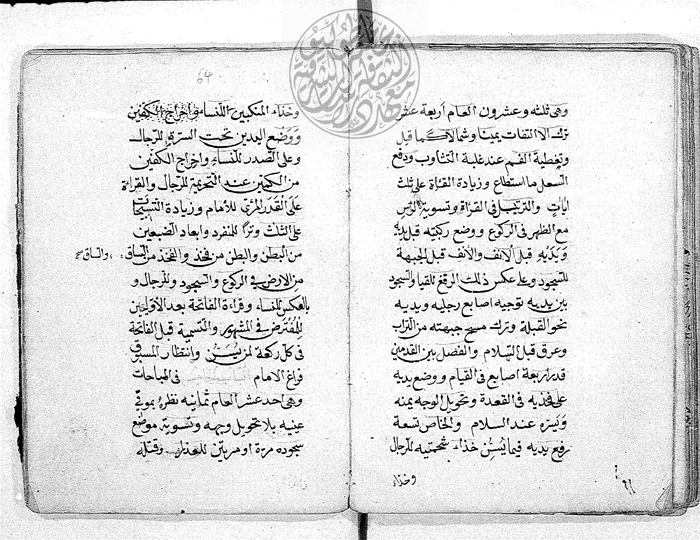 وهى ثلثه وعشرون العام أربعة عشر
ترك الالتفات يمينا وشمالا كما قيل
وتغطية الفم عند غلبة التثاوب ودفع
السعل ما استطاع وزيادة القراة على ثلث
ايات والترتيل فى القراة وتسوية الراس
مع الظهر فى الركوع ووضع ركبتيه قبل يديه
ويديه قبل الانف والانف قبل الجبهة
للسجود وعلى عكس ذلك الرفع للقيام والسجود
بين يديه توجيه اصابع رجليه ويديه
نحو القبلة وترك مسح جبهته من التراب
وعرق قبل السلام والفصل بين القدمين
قدر اربعة اصابع فى القيام ووضع يديه
على فخذيه فى القعدة وتحويل الوجه يمنه
ويسره عند السلام والخاص تسعة
رفع يديه فيما يسن حذاء شحمتيه للرجال
وحذاء
64
وحذاء المنكبين للنساء واخراج الكفين
ووضع اليدين تحت السرة للرجال
وعلى الصدر للنساء واخراج الكفين
من الكمين عند التحريمة للرجال والقراة
على القدر المروى للامام وزيادة التسبيحات
على الثلث وترا للمنفرد وابعاد الضبعين
من البطن والبطن من فخذ والفخذ من الساق
والساق صح
من الارض فى الركوع والسجود وللرجال و
بالعكس للنساء وقراءة الفاتحة بعد الاوليين
للمفترض فى المشهور والتسمية قبل الفاتحة
فى كل ركعة لمن يسن وانتظار المسبوق
فراغ الامام فى المباحات
وهى احد عشر العام ثمانية نظره بموق
عينيه بلا تحويل وجهه وتسوية موضع
سجوده مرة او مرتين للعذر وقتله